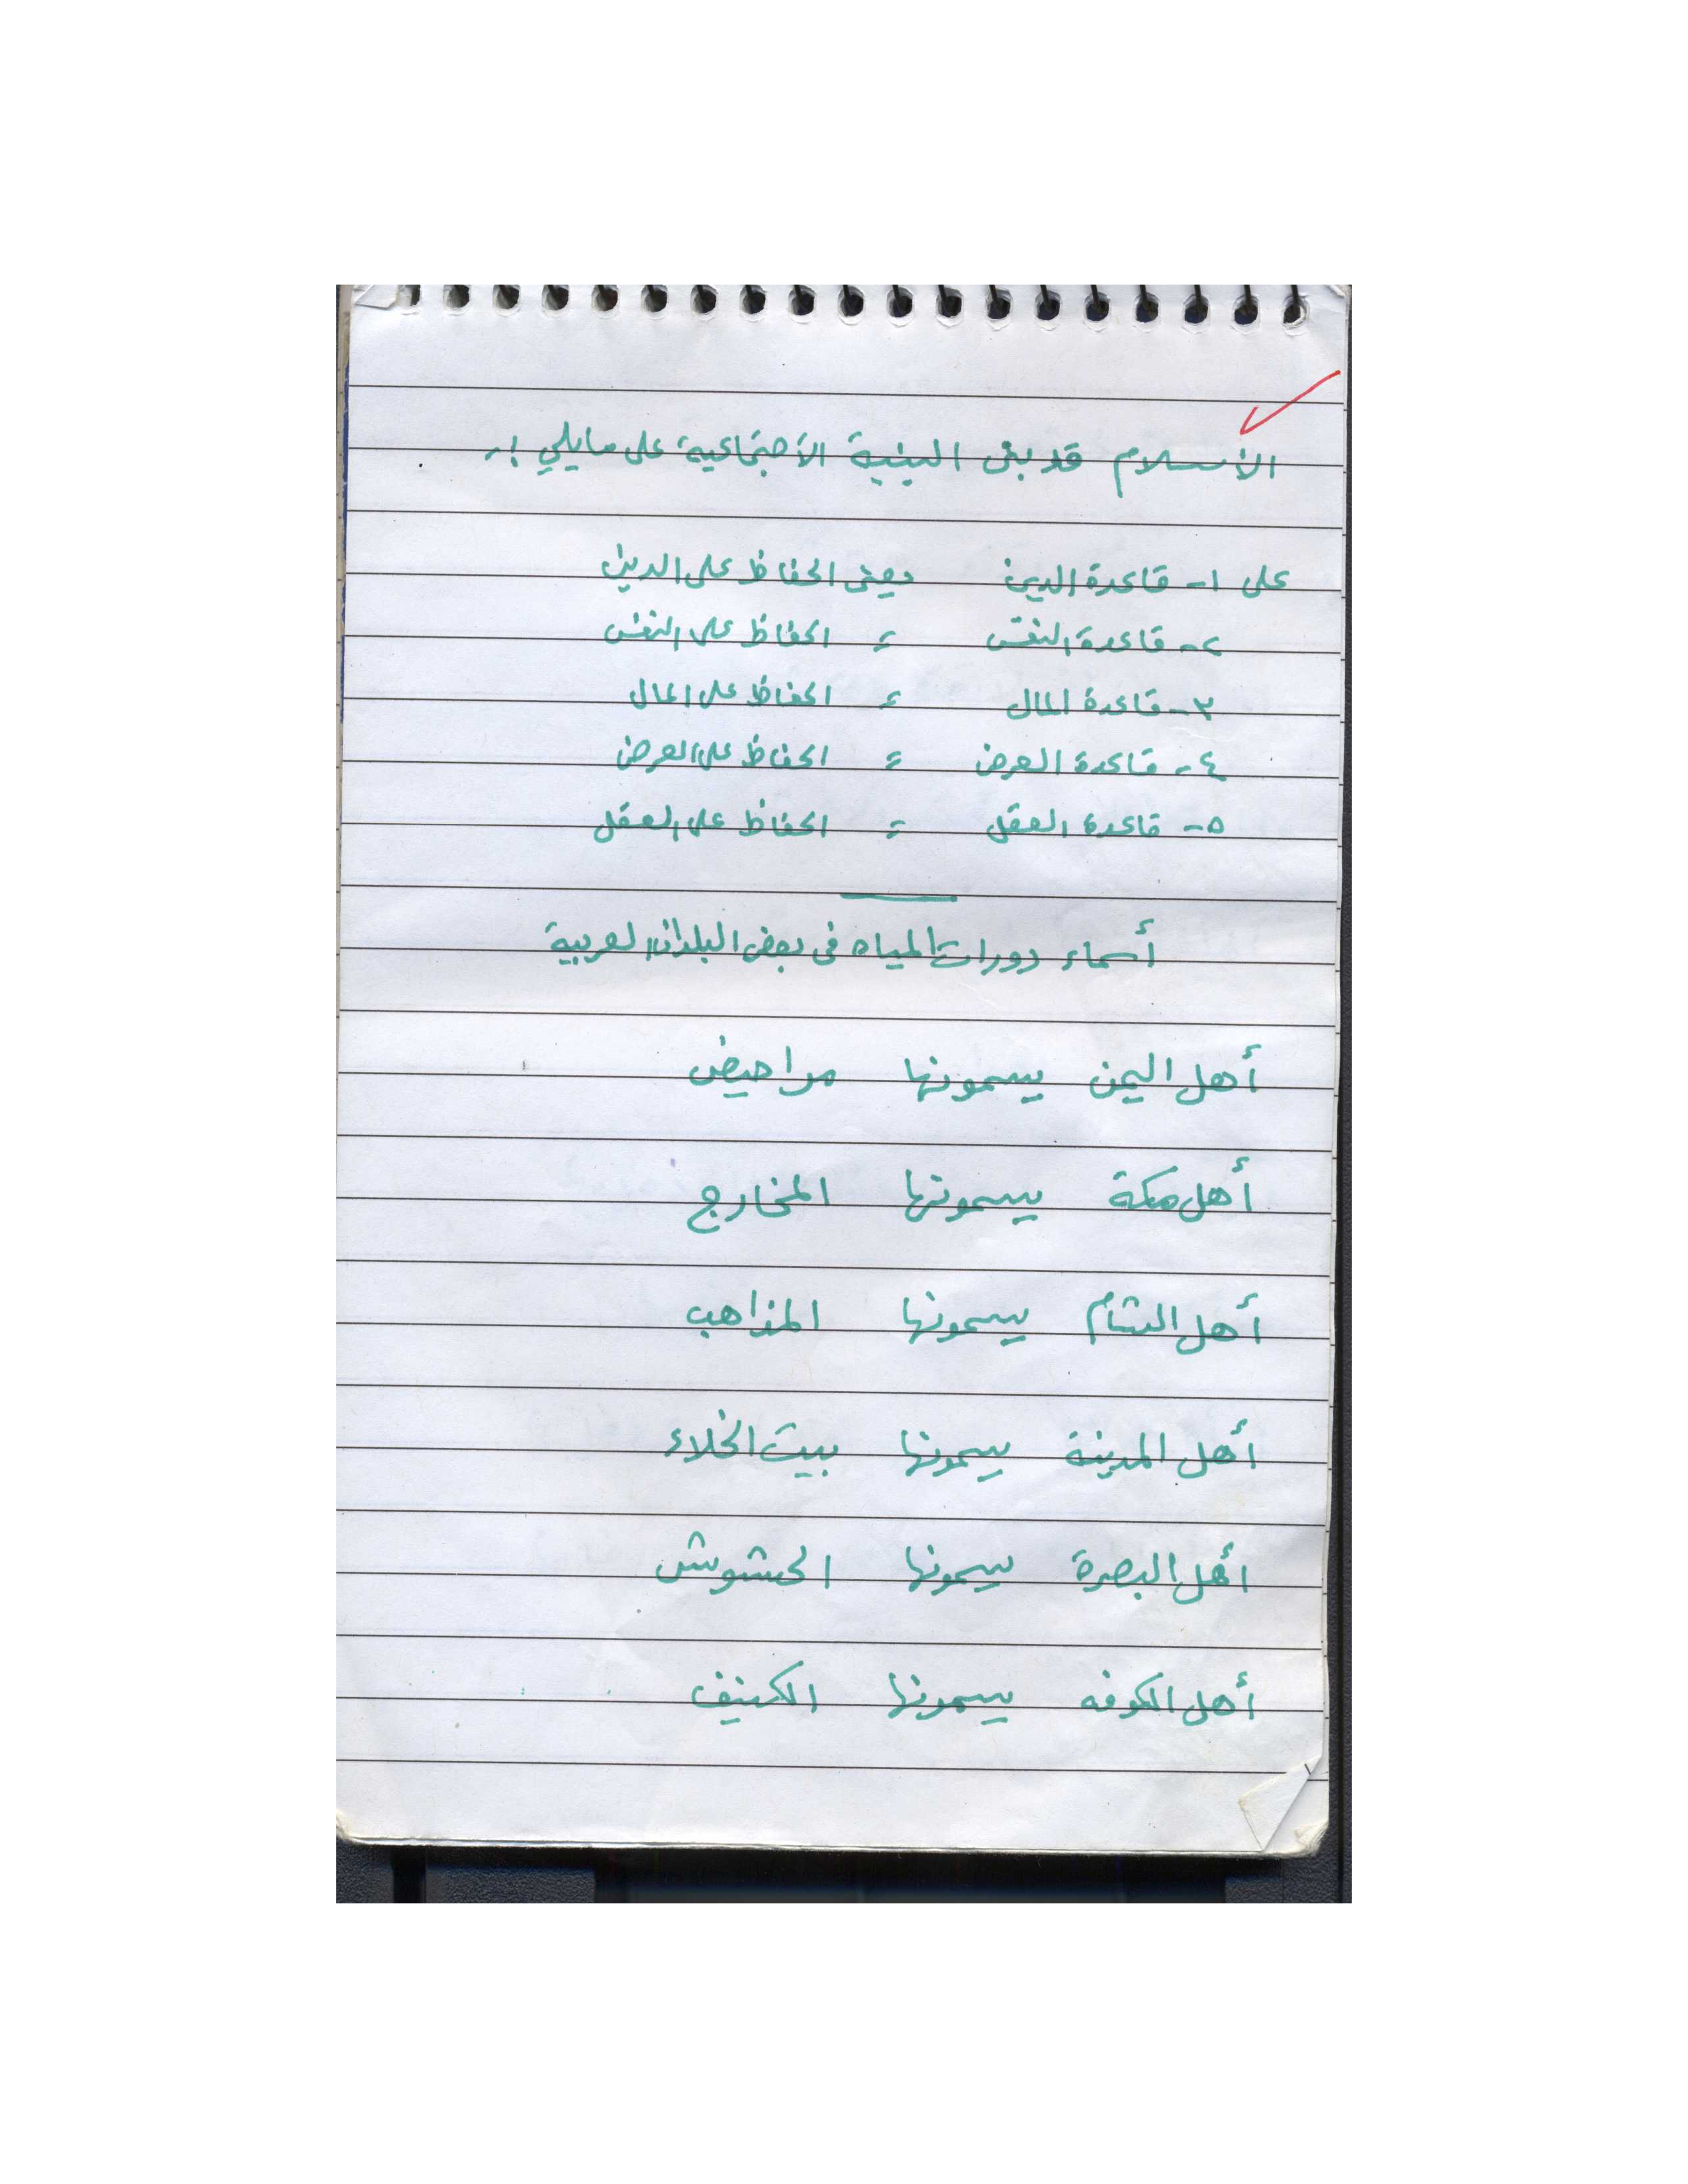 الأسلام قد بنى البنية الأجتماعية على مايلي :-
على ١- قاعدة الدين يعنى الحفاظ على الدين
٢- قاعدة النفس = الحفاظ على النفس
٣- قاعدة المال = الحفاظ على المال
٤- قاعدة العرض = الحفاظ على العرض
٥- قاعدة العقل = الحفاظ على العقل
أسماء دورات المياه فى بعض البلدان العربية
أهل اليمن يسمونها مراحيض
أهل مكة يسمونها المخارج
أهل الشام يسمونها المذاهب
أهل المدينة يسمونها بيت الخلاء
أهل البصرة يسمونها الحشوش
أهل الكوفه يسمونها الكنيف